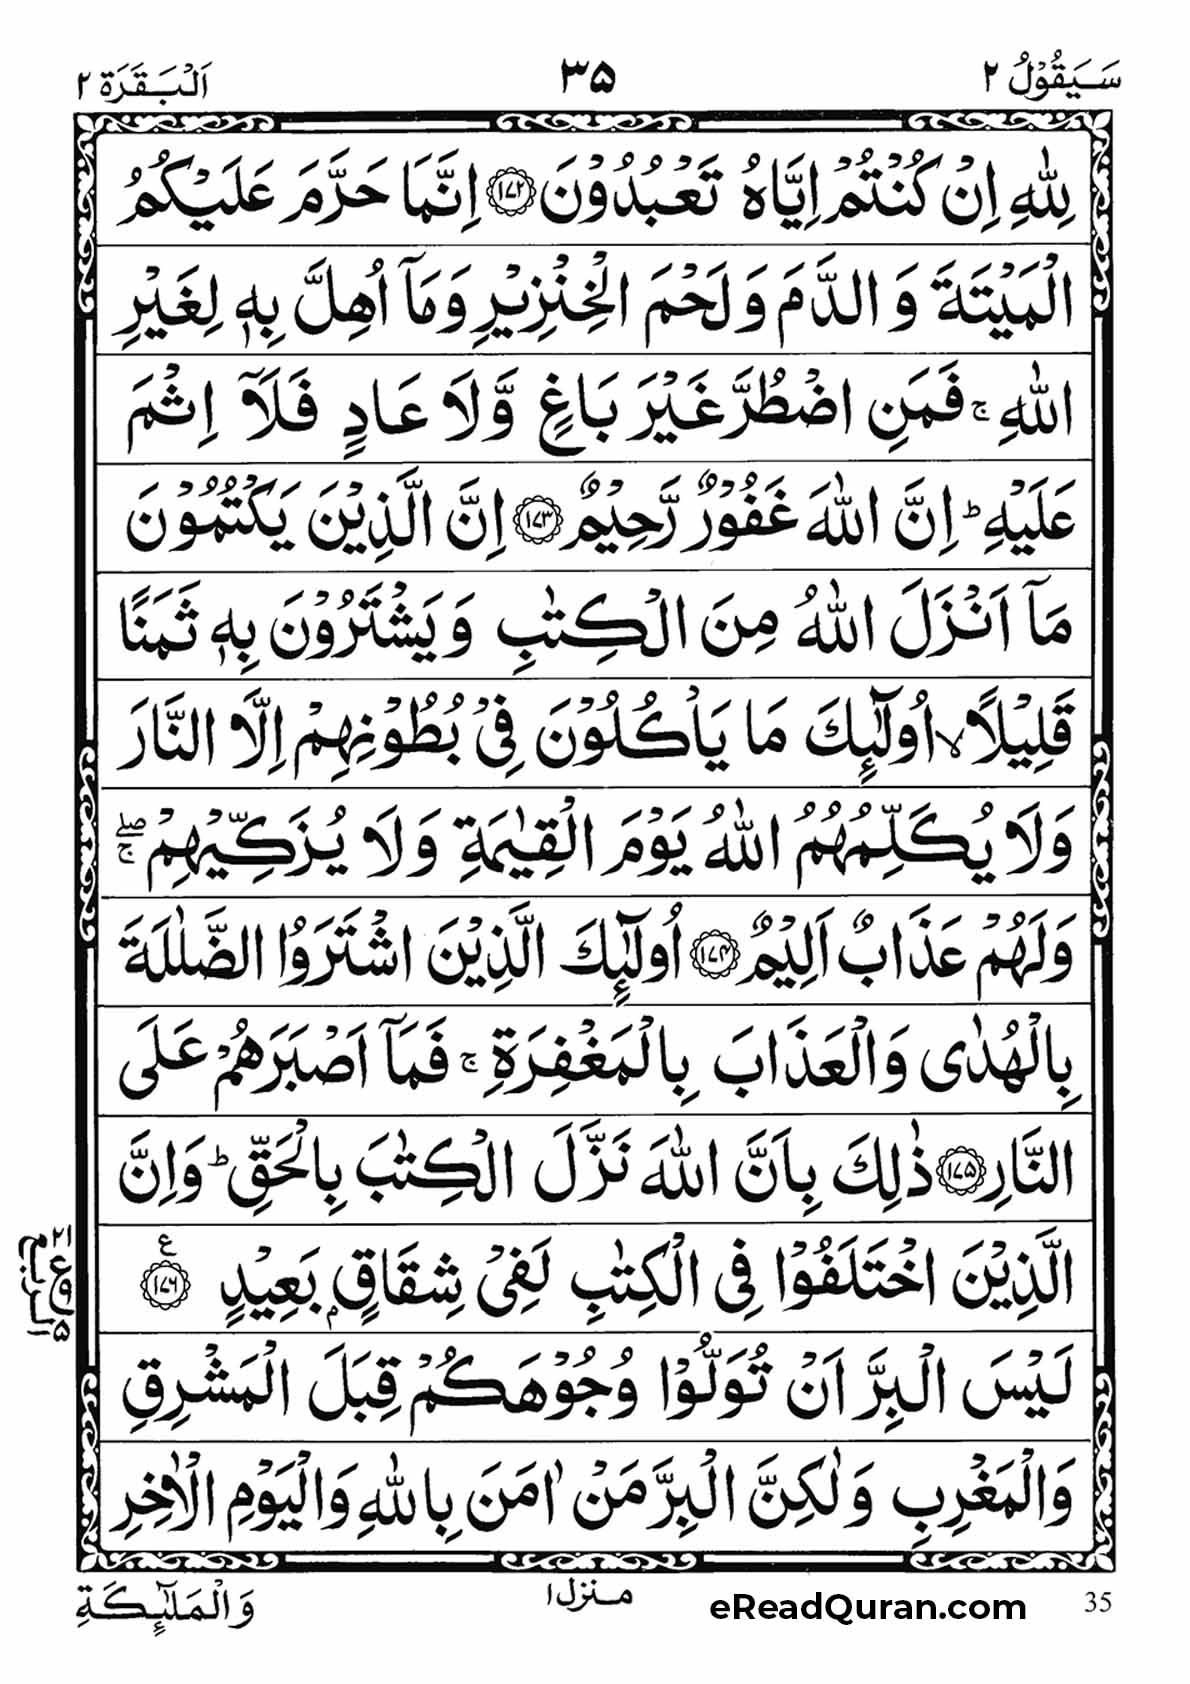 سَيَقُوْلُ ٢
٣٥
اَلْبَقَرَة ٢
لِلّٰهِ اِنْ كُنْتُمْ اِيَّاهُ تَعْبُدُوْنَ ١٧٢ اِنَّمَا حَرَّمَ عَلَيْكُمُ
الْمَيْتَةَ وَ الدَّمَ وَ لَحْمَ الْخِنْزِيْرِ وَ مَآ اُهِلَّ بِهٖ لِغَيْرِ
اللّٰهِ ۚ فَمَنِ اضْطُرَّ غَيْرَ بَاغٍ وَّ لَا عَادٍ فَلَآ اِثْمَ
عَلَيْهِ ؕ اِنَّ اللّٰهَ غَفُوْرٌ رَّحِيْمٌ ١٧٣ اِنَّ الَّذِيْنَ يَكْتُمُوْنَ
مَآ اَنْزَلَ اللّٰهُ مِنَ الْكِتٰبِ وَ يَشْتَرُوْنَ بِهٖ ثَمَنًا
قَلِيْلًا ۙ اُولٰٓئِكَ مَا يَاْكُلُوْنَ فِيْ بُطُوْنِهِمْ اِلَّا النَّارَ
وَ لَا يُكَلِّمُهُمُ اللّٰهُ يَوْمَ الْقِيٰمَةِ وَ لَا يُزَكِّيْهِمْ ۖۚ
وَ لَهُمْ عَذَابٌ اَلِيْمٌ ١٧٤ اُولٰٓئِكَ الَّذِيْنَ اشْتَرَوُا الضَّلٰلَةَ
بِالْهُدٰى وَ الْعَذَابَ بِالْمَغْفِرَةِ ۚ فَمَآ اَصْبَرَهُمْ عَلَى
النَّارِ ١٧٥ ذٰلِكَ بِاَنَّ اللّٰهَ نَزَّلَ الْكِتٰبَ بِالْحَقِّ ؕ وَ اِنَّ
الَّذِيْنَ اخْتَلَفُوْا فِي الْكِتٰبِ لَفِيْ شِقَاقٍۭ بَعِيْدٍ ١٧٦ ع
لَيْسَ الْبِرَّ اَنْ تُوَلُّوْا وُجُوْهَكُمْ قِبَلَ الْمَشْرِقِ
وَ الْمَغْرِبِ وَ لٰكِنَّ الْبِرَّ مَنْ اٰمَنَ بِاللّٰهِ وَ الْيَوْمِ الْاٰخِرِ
35
eReadQuran.com
منزل ١
وَ الْمَلٰٓئِكَةِ